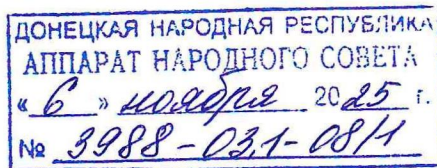 ДОНЕЦКАЯ НАРОДНАЯ РЕСПУБЛИКА
АППАРАТ НАРОДНОГО СОВЕТА
« 6 » ноября 2025 г.
№ 3988-03.1-08/1